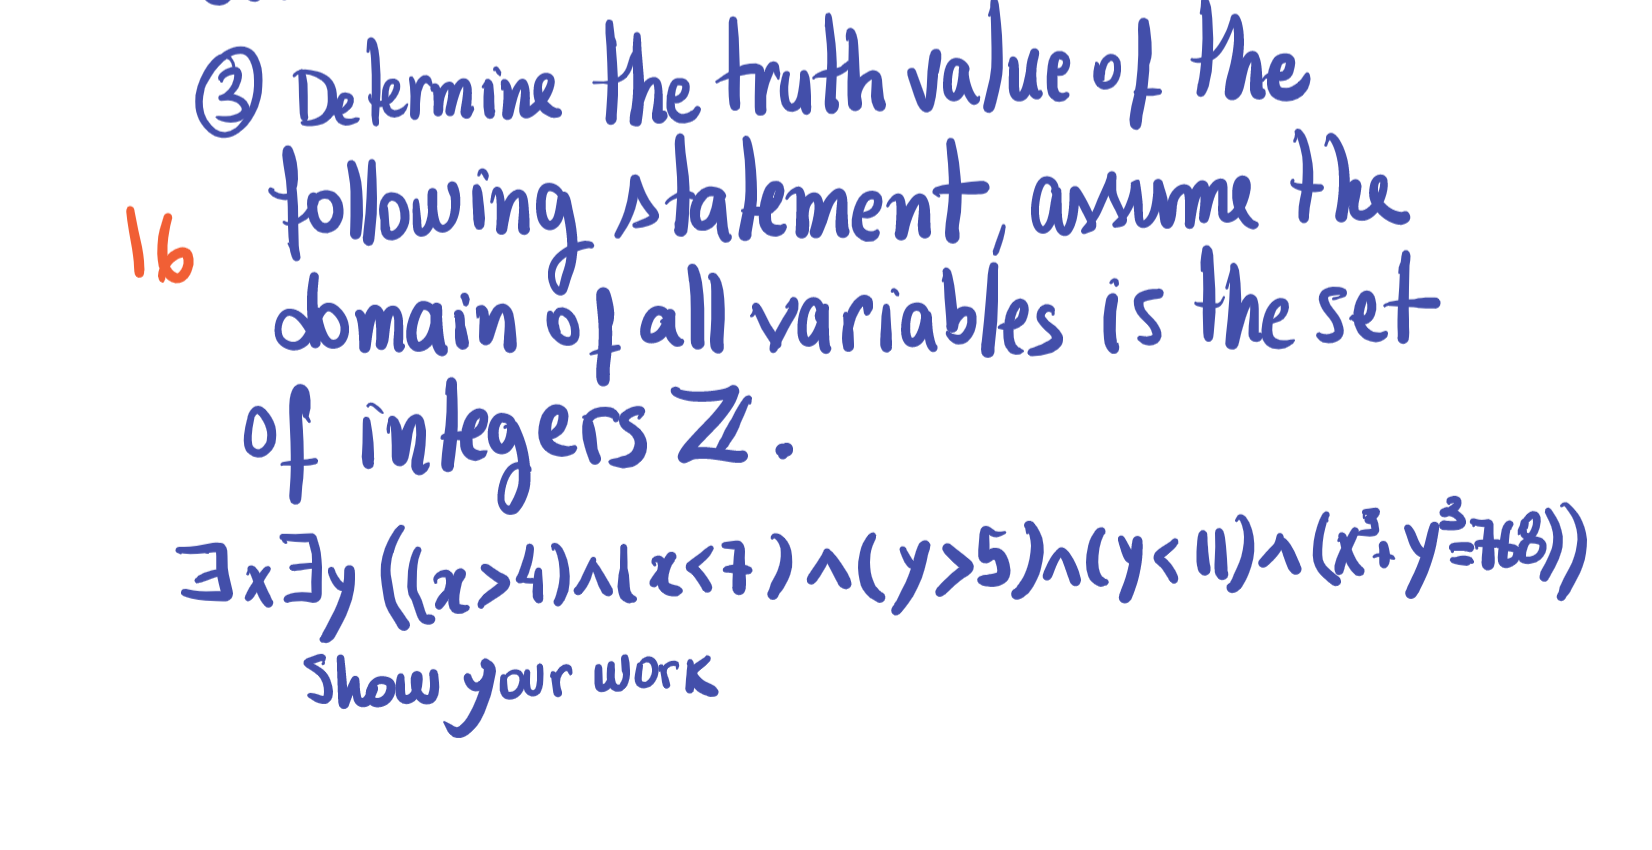 ③ Determine the truth value of the
following statement, assume the
16
domain of all variables is the set
of integers ℤ.
∃x∃y ((x>4)∧(x<7)∧(y>5)∧(y<11)∧(x³+y³=768))
Show your work